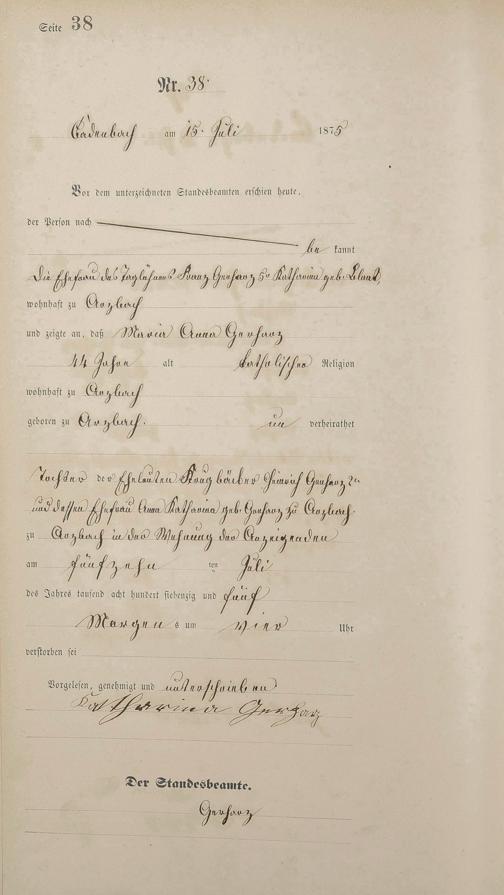 Seite 38
Nr. 38
Cadenbach am 15. Juli 1875
Vor dem unterzeichneten Standesbeamten erschien heute,
der Person nach
be kannt
die Ehefrau des Taglöhners Franz Gerharz 5r Katharina geb.
wohnhaft zu Arzbach
und zeigte an, daß Maria Anna Gerharz
44 Jahre alt katholischer Religion
wohnhaft zu Arzbach
geboren zu Arzbach. un verheirathet
Tochter der Eheleuten Krugbäcker Heinrich Gerharz 2r
und dessen Ehefrau Anna Katharina geb. Gerharz zu Arzbach
zu Arzbach in der Wohnung der Anzeigenden
am fünfzehn ten Juli
des Jahres tausend acht hundert siebenzig und fünf
Morgen s um vier Uhr
verstorben sei
Vorgelesen, genehmigt und unterschrieben
Katharina Gerharz
Der Standesbeamte.
Gerharz